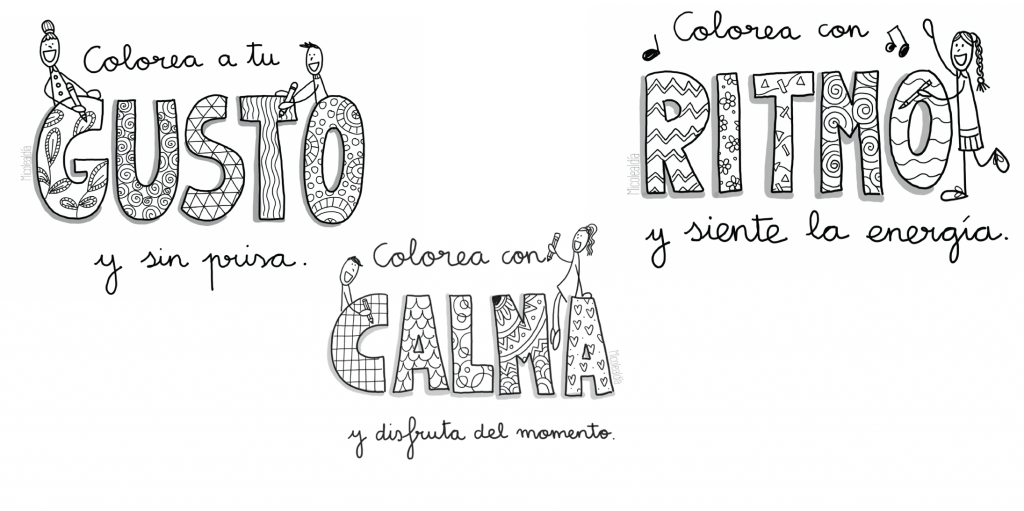 Colorea a tu
GUSTO
y sin prisa.
Colorea con
RITMO
y siente la energía.
Colorea con
CALMA
y disfruta del momento.